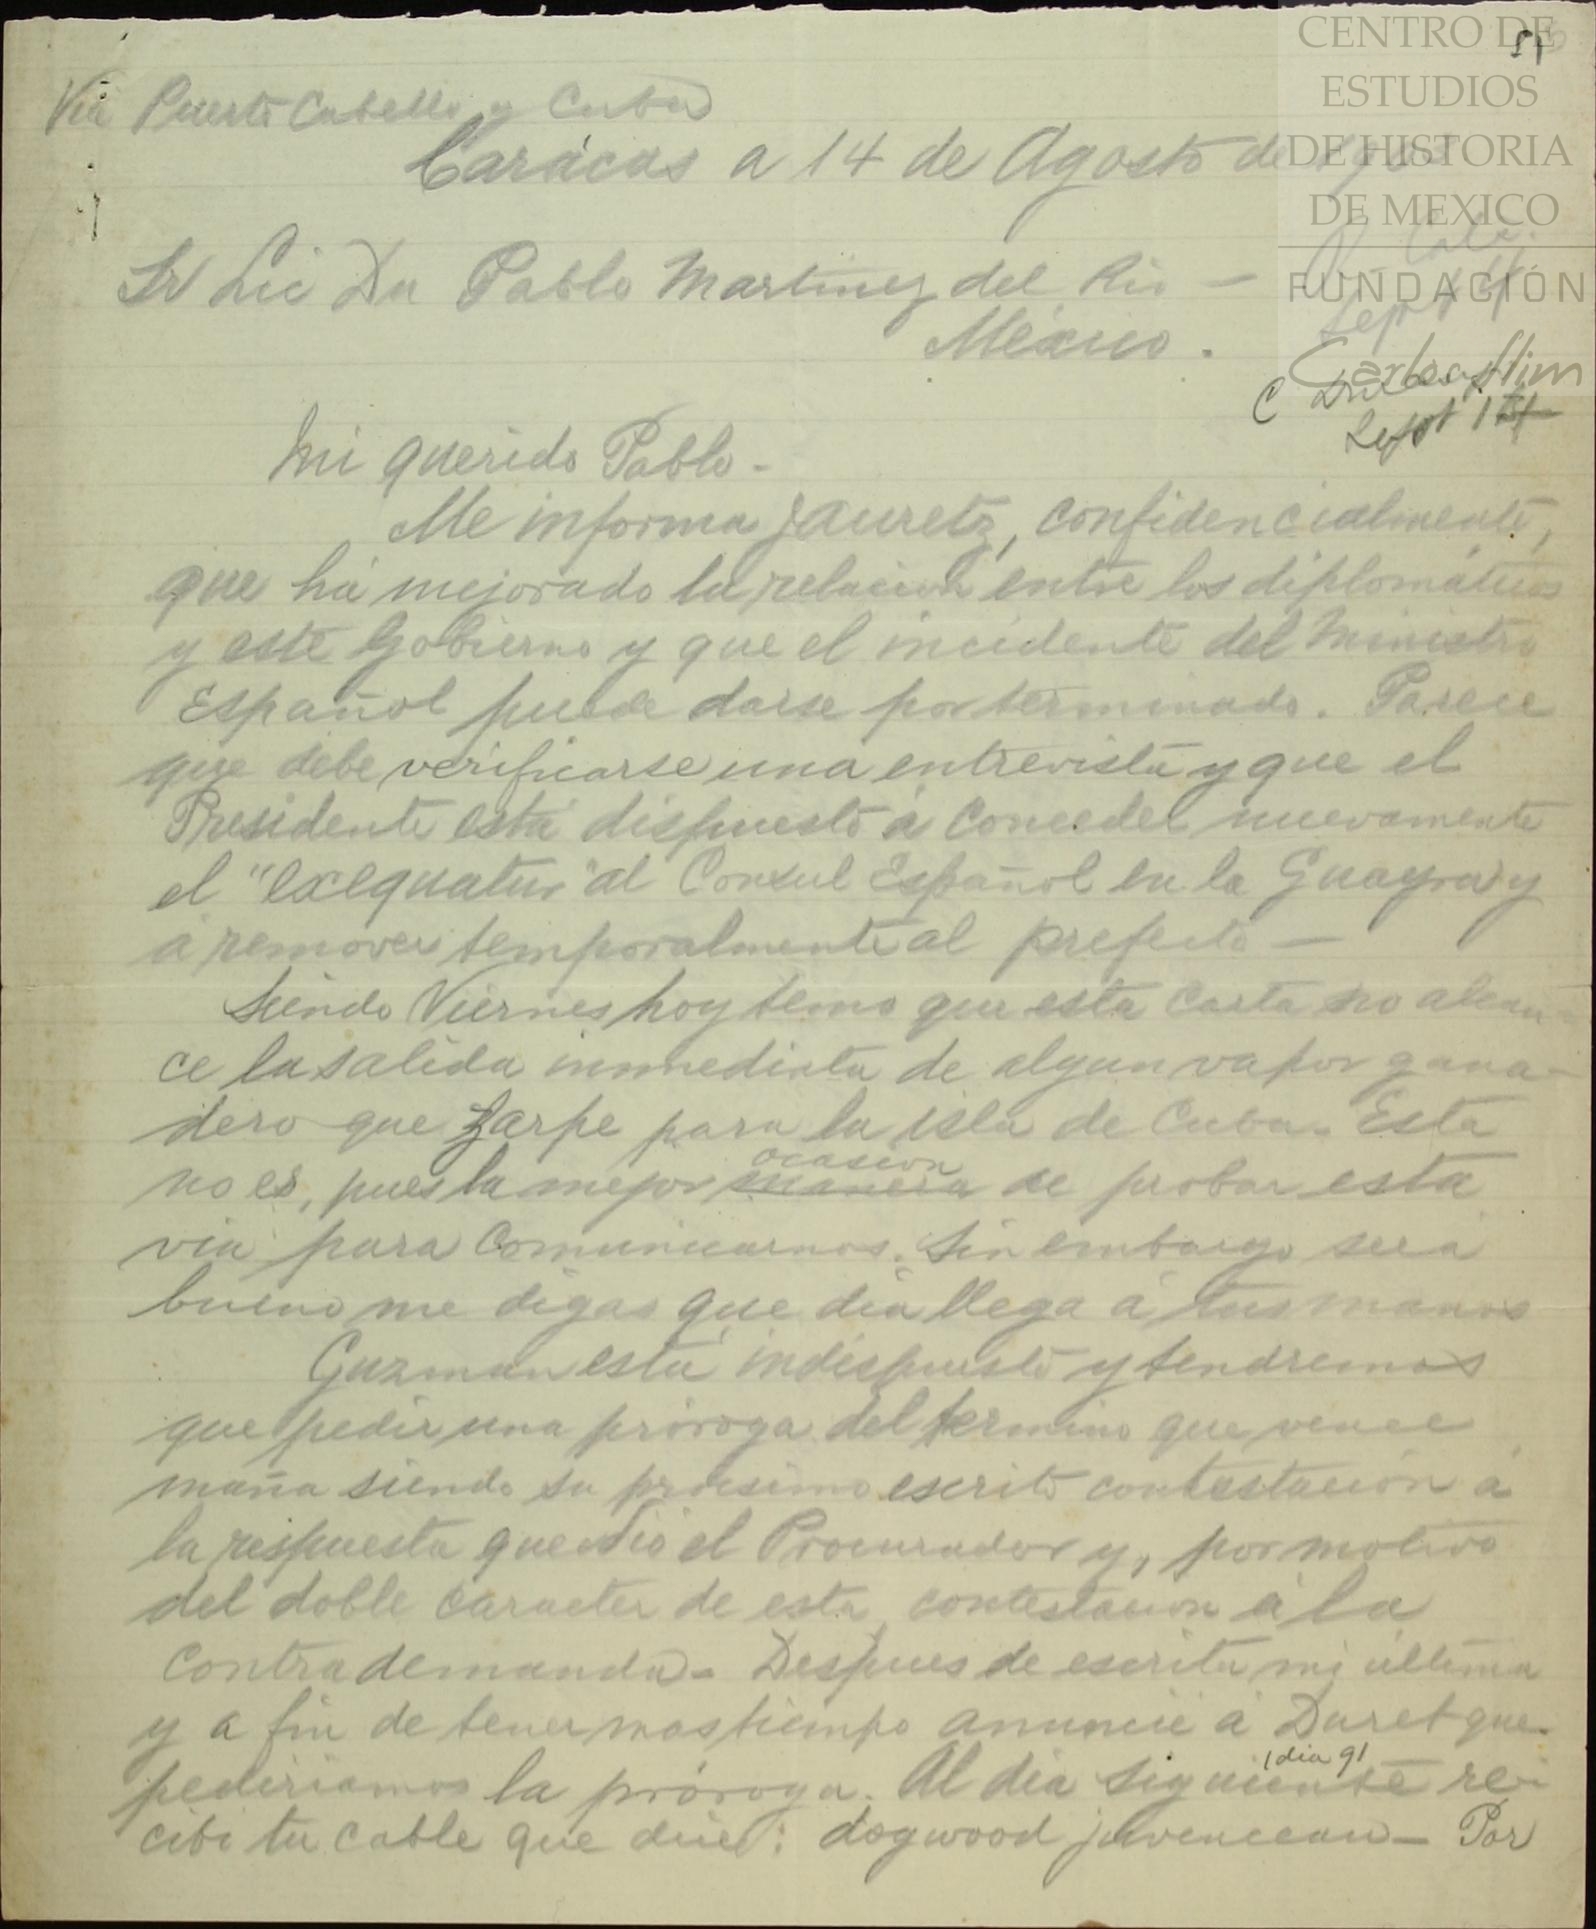 CENTRO DE
ESTUDIOS
DE HISTORIA
DE MEXICO
FUNDACIÓN
Carlos Slim
Via Puerto Cabello y Cuba
Carácas a 14 de Agosto de
Sr Lic Dn Pablo Martinez del Rio —
México.
Sept 1st
Mi querido Pablo -
Me informa Jauretz, confidencialmente,
que há mejorado la relacion entre los diplomáticos
y este Gobierno y que el incidente del Ministro
Español puede darse por terminado. Parece
que debe verificarse una entrevista y que el
Presidente está dispuesto á conceder nuevamente
el "exequatur" al Consul Español en la Guayra y
á remover temporalmente al prefecto —
Siendo Viernes hoy temo que esta carta no alcan-
ce la salida inmediata de algun vapor gana-
dero que zarpe para la isla de Cuba. Esta
no es, pues la mejor manera ocasion de probar esta
via para comunicarnos. Sin embargo será
bueno me digas que dia llega á tus manos
Guzman está indispuesto y tendremos
que pedir una próroga del termino que vence
maña siendo su procsimo escrito contestación á
la respuesta que dió el Procurador y, por motivo
del doble caracter de esta, contestacion á la
contrademanda. Despues de escrita mi última
y a fin de tener mas tiempo anuncié á Duret que
pediriamos la próroga. Al dia siguiente (dia 9) re-
cibi tu cable que dice: dogwood juvencean — Por